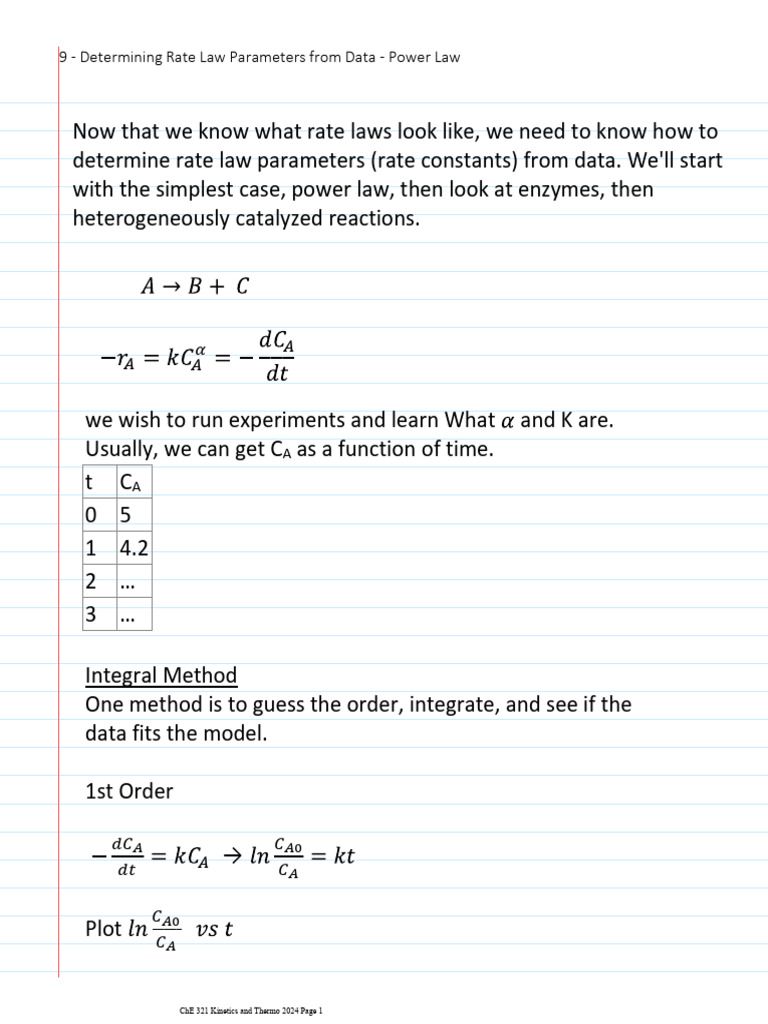 9 - Determining Rate Law Parameters from Data - Power Law
Now that we know what rate laws look like, we need to know how to
determine rate law parameters (rate constants) from data. We'll start
with the simplest case, power law, then look at enzymes, then
heterogeneously catalyzed reactions.
A → B + C
−r_A = kC_A^α = − dC_A/dt
we wish to run experiments and learn What α and K are.
Usually, we can get C_A as a function of time.
t C_A
0 5
1 4.2
2 ...
3 ...
Integral Method
One method is to guess the order, integrate, and see if the
data fits the model.
1st Order
− dC_A/dt = kC_A → ln C_A0/C_A = kt
Plot ln C_A0/C_A vs t
ChE 321 Kinetics and Thermo 2024 Page 1